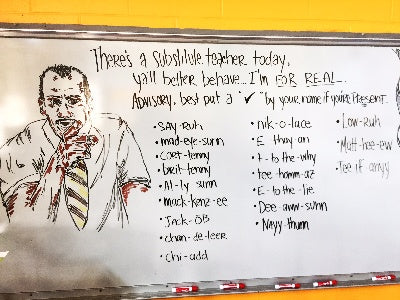 There's a substitute teacher today.
Y'all better behave... I'm FOR REAL...
Advisory, best put a "✓" by your name if you're Present.
• Say-Ruh
• mad-eye-sunn
• Coet-tenny
• brit-tenny
• Al-ly sunn
• mack-kenz-ee
• Jack-OB
• chan-de-leer
• Chi-add
• nik-o-lace
• E than-an
• tee-hamm-az
• E-to the-lie
• Dee aww-sunn
• Nayy thunn
• Low-ruh
• Matt-hee-ew
• Tee iff-anyy